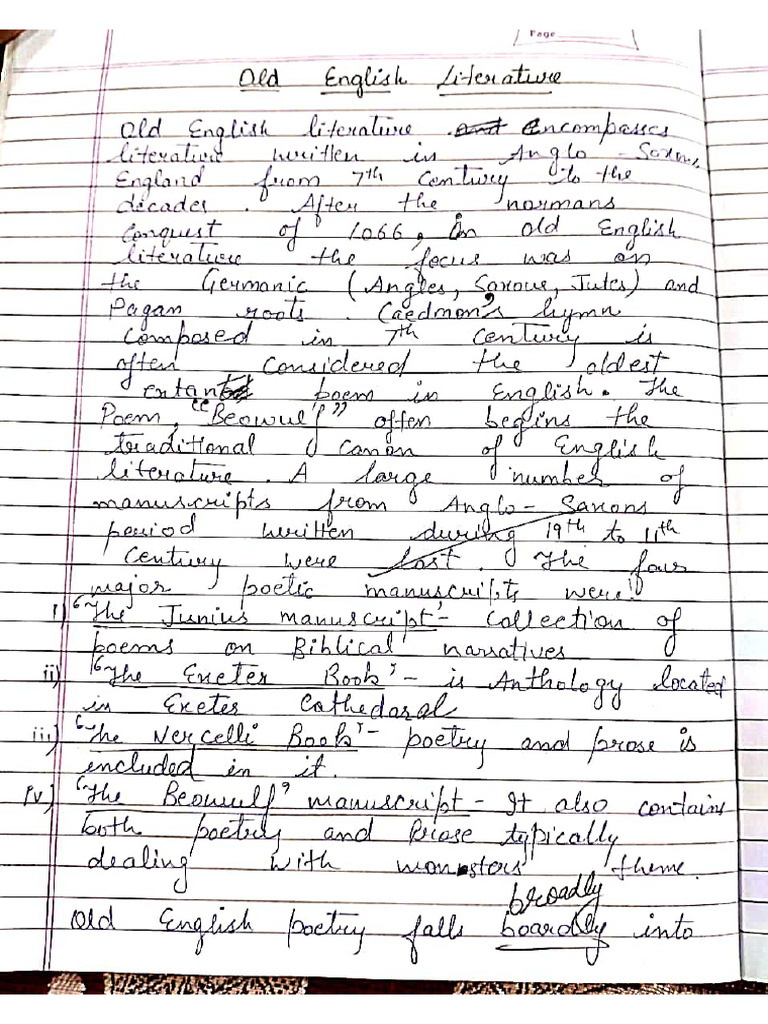 Page
Old English Literature
Old English literature and encompasses
literature written in Anglo-Saxons
England from 7th century to the
decades. After the normans
conquest of 1066, in old English
literature the focus was on
the Germanic (Angles, Saxons, Jutes) and
Pagan roots. Caedmon's hymn
composed in 7th century is
often considered the oldest
extant poem in English. The
Poem, "Beowulf" often begins the
traditional canon of English
literature. A large number of
manuscripts from Anglo-Saxons
period written during 19th to 11th
century were lost. The four
major poetic manuscripts were:
i) 'The Junius manuscript' - collection of
poems on Biblical narratives
ii) 'The Exeter Book' - is Anthology located
in Exeter Cathedaral
iii) 'The Nercelli Book' - poetry and prose is
included in it.
iv) 'The Beowulf' manuscript - It also contains
both poetry and Prose typically
dealing with monsters' theme.
broadly
Old English poetry falls boardly into